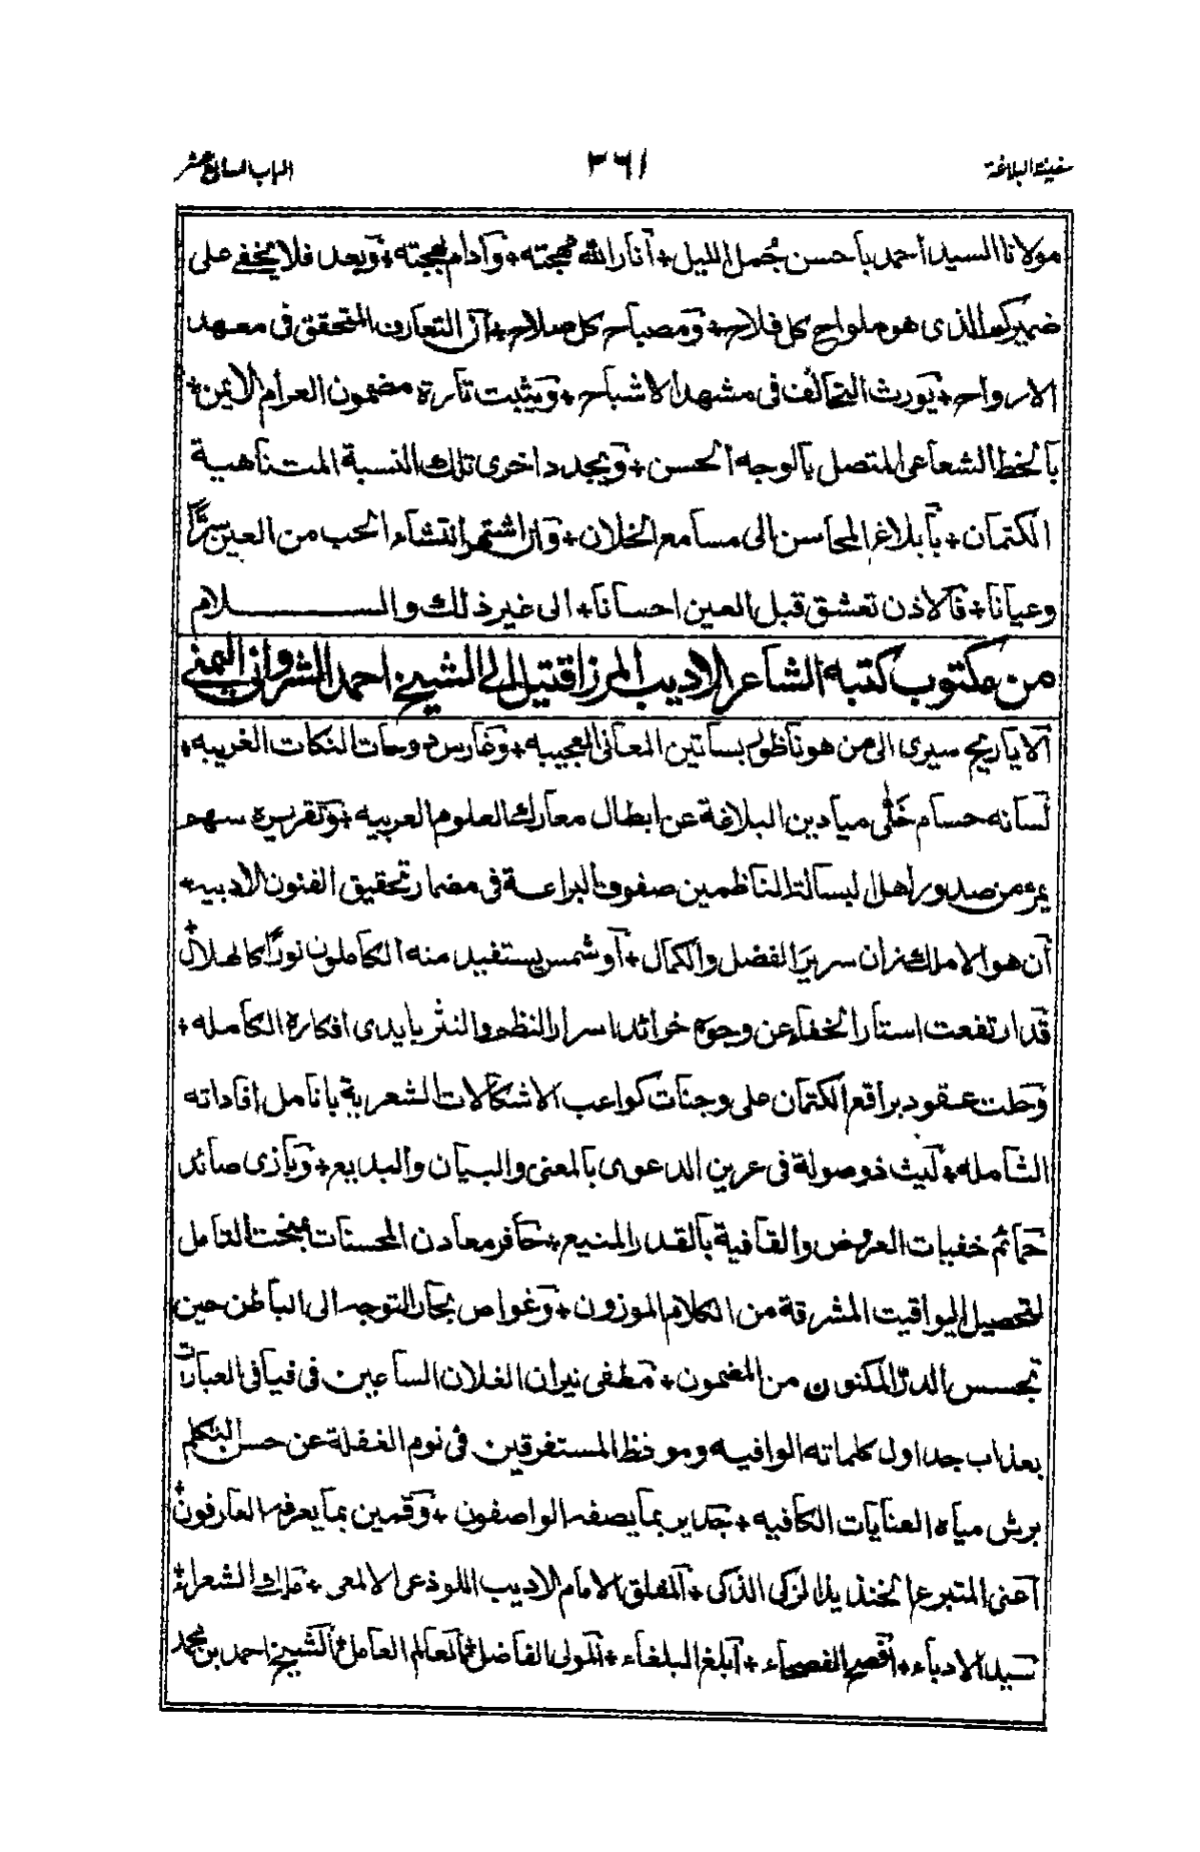 سفينة البلاغة
٣٦١
الباب السابع عشر
مولانا السيد أحمد بأحسن جُمل الليل + أنار الله مهجته + وأدام بهجته + وبعد فلا يخفى على
ضميركم الذي هو ملواح كل فلاح + ومصباح كل صلاح + أن التعارف المتحقق في معهد
الارواح + يورث التحالف في مشهد الاشباح + ويثبت تارة مضمون الغرام الايمن +
بالخط الشعاعي المتصل بالوجه الحسن + ويجدد اخرى تلك النسبة المتناهية
الكتمان + بابلاغ المحاسن الى مسامع الخلان + وان اشتهر انتشاء الحب من العين سرًّا
وعيانا + فالاذن تعشق قبل العين احسانا + الى غير ذلك والسلام
من مكتوب كتبه الشاعر الاديب المرزا قتيل الى الشيخ احمد الشرواني اليمني
ألا يا ريح سيرى الى من هو ناظور بساتين المعاني العجيبه + وغارس دوحات النكات الغريبه +
لسانه حسام خَلَّى ميادين البلاغة عن ابطال معارك العلوم العربيه + وتقريره سهم
يمرّ من صدور اهل البسالة الناظمين صفوف البراعة في مضمار تحقيق الفنون الادبيه +
أن هو الا ملك زان سرير الفضل والكمال + أو شمس يستفيد منه الكاملون نورًا كالهلال +
قد ارتفعت استار الخفاء عن وجوه خرائد اسرار النظم والنثر بايدى افكاره الكامله +
وحلت عقود براقع الكتمان على وجنات كواعب الاشكالات الشعرية بانامل افاداته
الشامله + ليث ذو صولة في عرين الدعوى بالمعنى والبيان والبديع + وبازى صائد
حمائم خفيات العروض والقافية بالقدر المنيع + حافر معادن المحسنات بمنحت التامل
لتحصيل اليواقيت المشرقة من الكلام الموزون + وغواص بحار التوجه الى الباطن حين
تجسس الدرّ المكنون من المضمون + مطفى نيران الغلان الساعين في فيافى العبارات
بعذاب جداول كلماته الوافيه وموقظ المستغرقين في نوم الغفلة عن حسن التكلم
برش مياه العنايات الكافيه + جدير بما يصفه الواصفون + وقمين بما يعرفه العارفون +
أعنى المتبرع الخنذيذ الزكى الذكى + المفلق الامام الاديب اللوذعى الالمعى + ملك الشعراء +
سيد الادباء + أفصح الفصحاء + أبلغ البلغاء + المولى الفاضل + العالم العامل + الشيخ احمد بن محمد